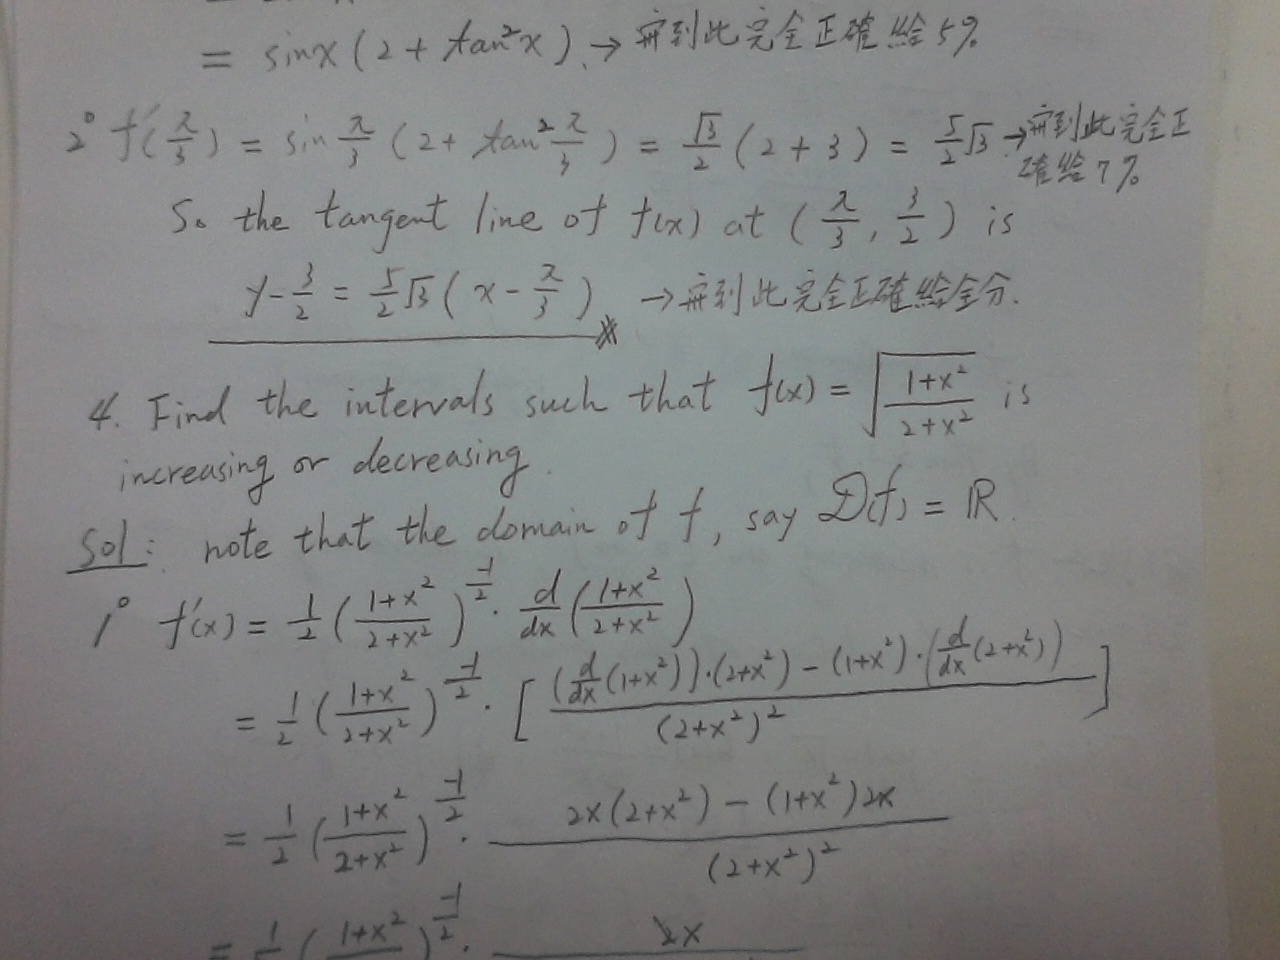 = sinx (2 + tan²x). → 算到此完全正確給5%
2° f'(π/3) = sin π/3 (2 + tan² π/3) = √3/2 (2 + 3) = 5/2 √3 → 算到此完全正
確給7%
So the tangent line of f(x) at (π/3, 3/2) is
y - 3/2 = 5/2 √3 (x - π/3) → 算到此完全正確給全分.
4. Find the intervals such that f(x) = √((1+x²)/(2+x²)) is
increasing or decreasing.
Sol: note that the domain of f, say D(f) = ℝ.
1° f'(x) = 1/2 ((1+x²)/(2+x²))^(-1/2) · d/dx ((1+x²)/(2+x²))
= 1/2 ((1+x²)/(2+x²))^(-1/2) · [((d/dx (1+x²))·(2+x²) - (1+x²)·(d/dx (2+x²)))/(2+x²)²]
= 1/2 ((1+x²)/(2+x²))^(-1/2) · (2x(2+x²) - (1+x²)2x)/(2+x²)²